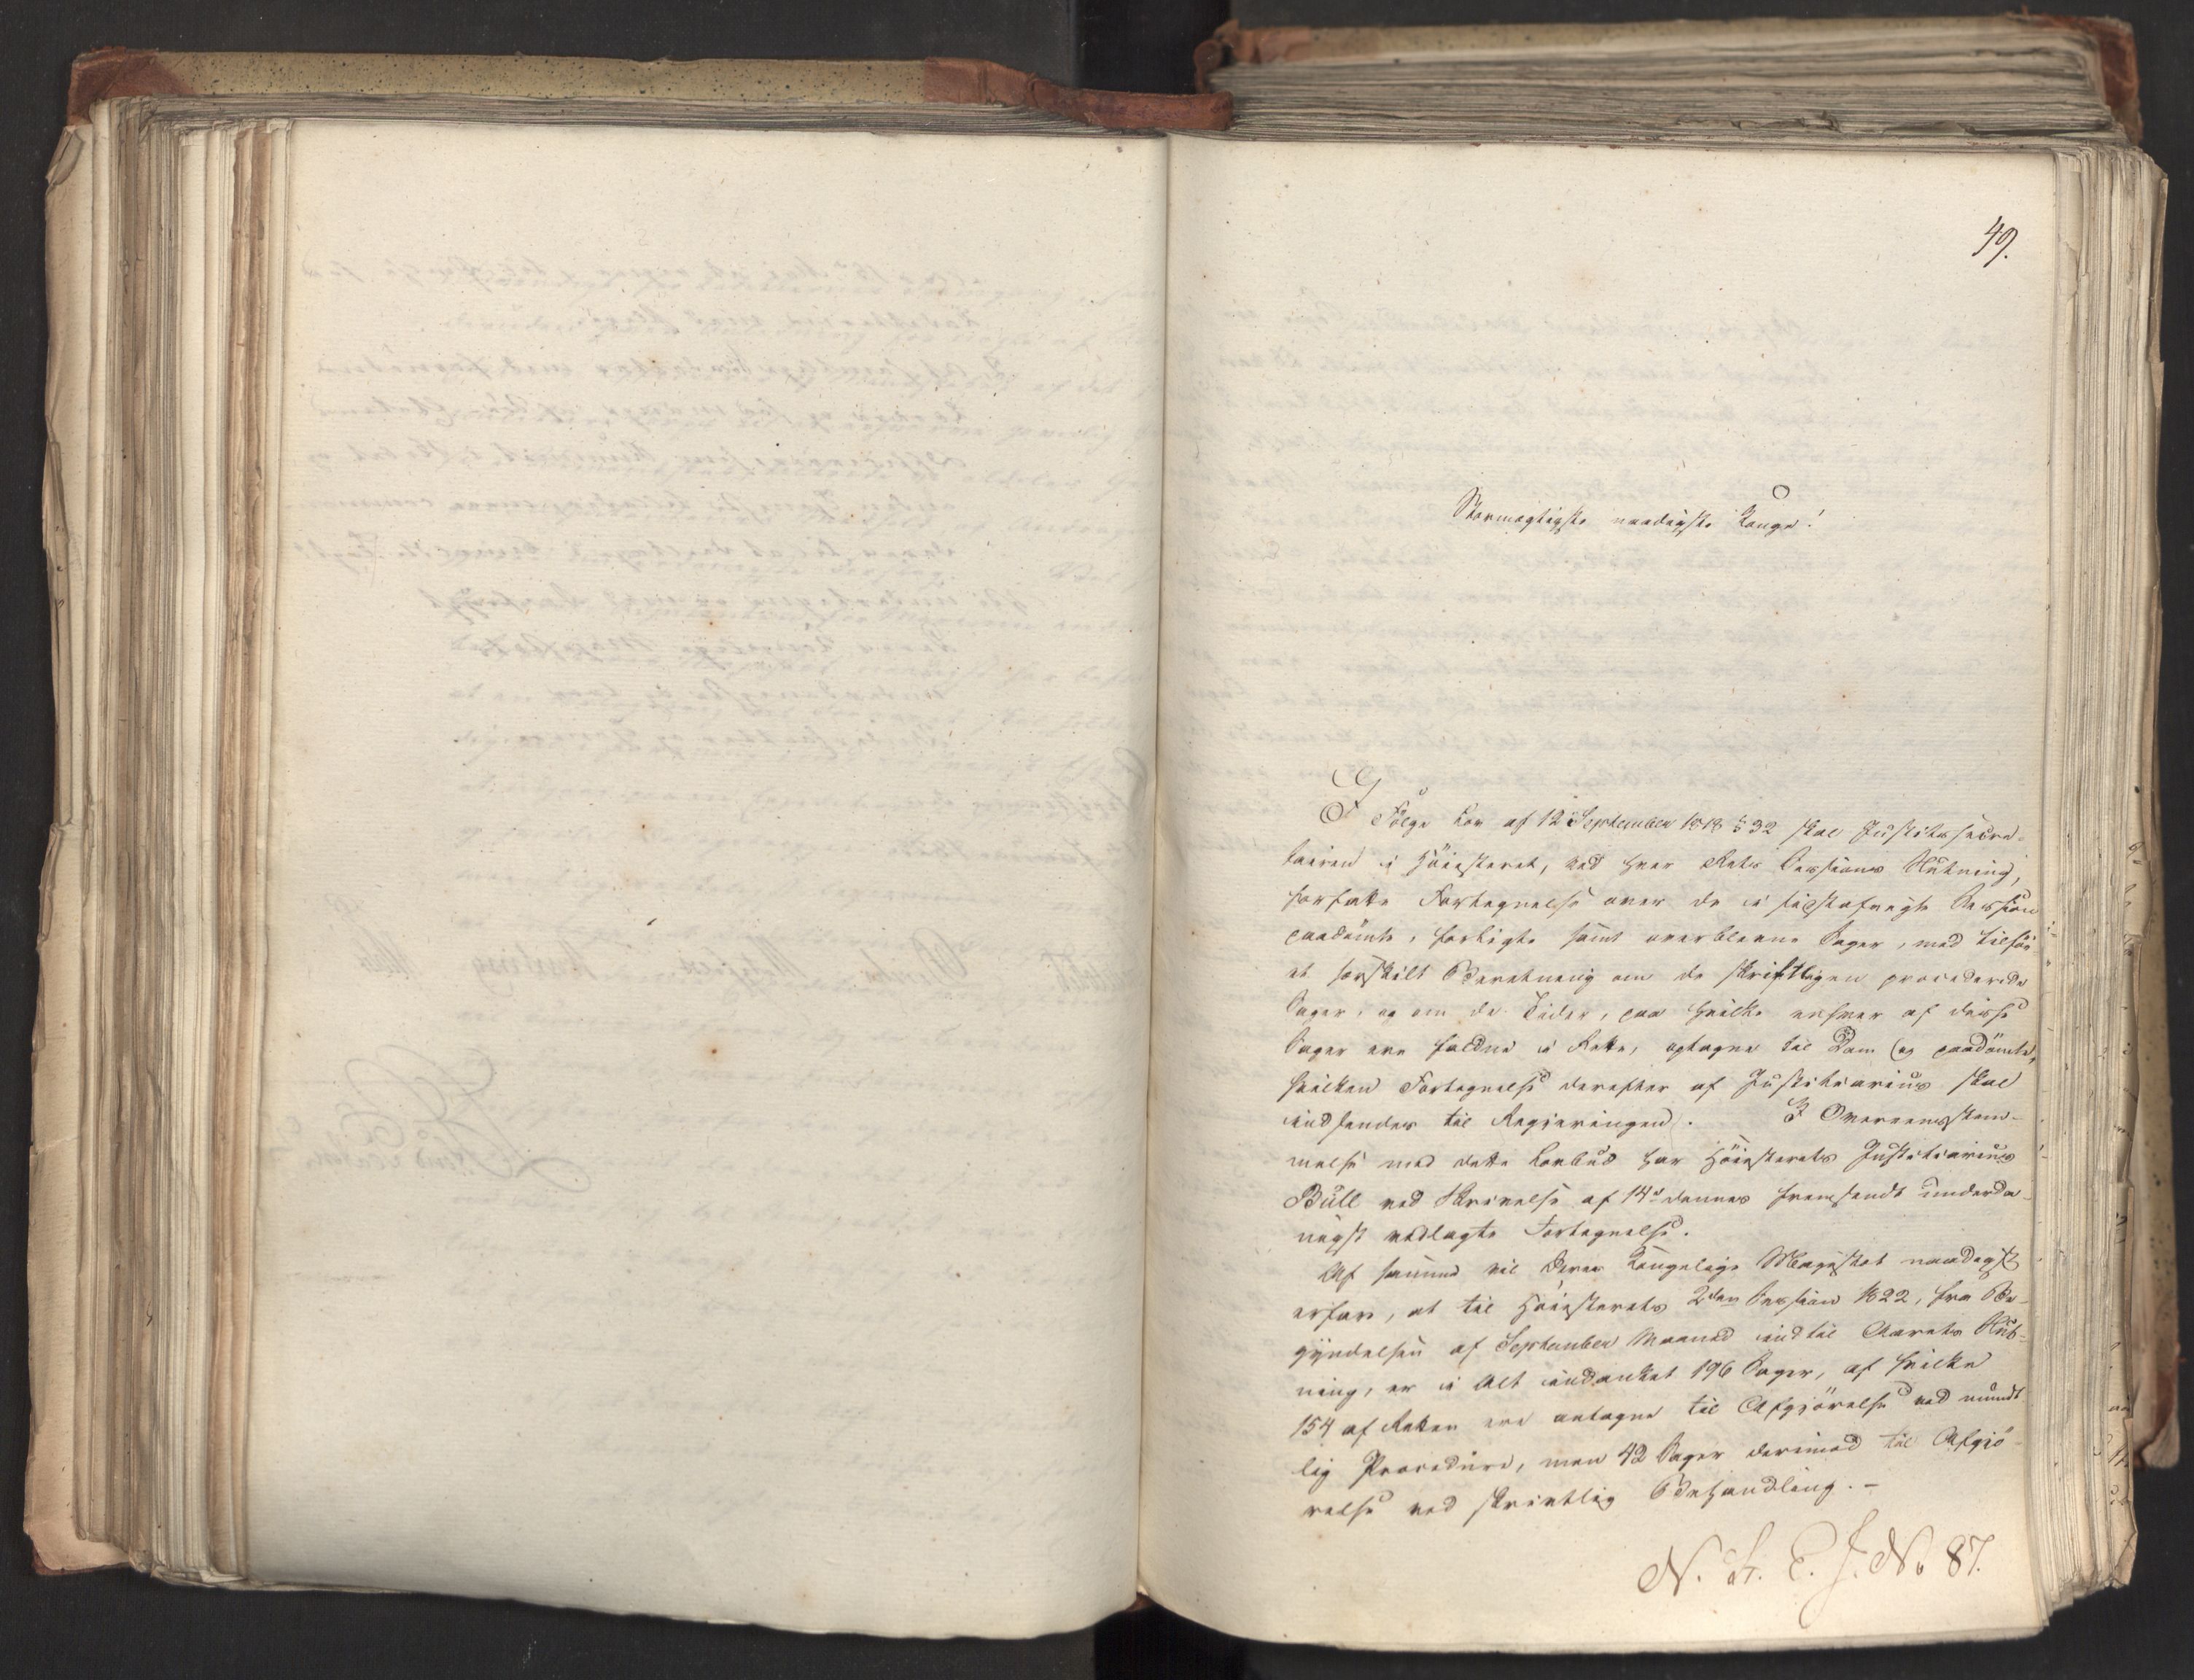 49.
Stormægtigste naadigste Konge!
I Følge Lov af 12 September 1818 § 32 skal Justitssecre-
tairen i Høiesteret, ved hver Rets Sessions Slutning,
forfatte Fortegnelse over de i sidstafvigte Session
paadømte, forligte samt overblevne Sager, med tilføi-
et særskilt Beretning om de skriftligen procederede
Sager, og om de Tider, paa hvilke enhver af disse
Sager ere faldne i Rette, optagne til Dom og paadømte,
hvilken Fortegnelse derefter af Justitiarius skal
indsendes til Regjeringen. I Overeensstem-
melse med dette Lovbud har Høiesterets Justitiarius
Bull ved Skrivelse af 14de dennes fremsendt underda-
nigst vedlagte Fortegnelse.
Af samme vil Deres Kongelige Majestæt naadigst
erfare, at til Høiesterets 2den Session 1822, fra Be-
gyndelsen af September Maaned indtil Aarets Slut-
ning, er i Alt indanket 196 Sager, af hvilke
154 af Retten ere antagne til Afgjørelse ved mundt
lig Procedure, men 42 Sager derimod til Afgjø-
relse ved skrivtlig Behandling. -
N. St. E. J. No 87.